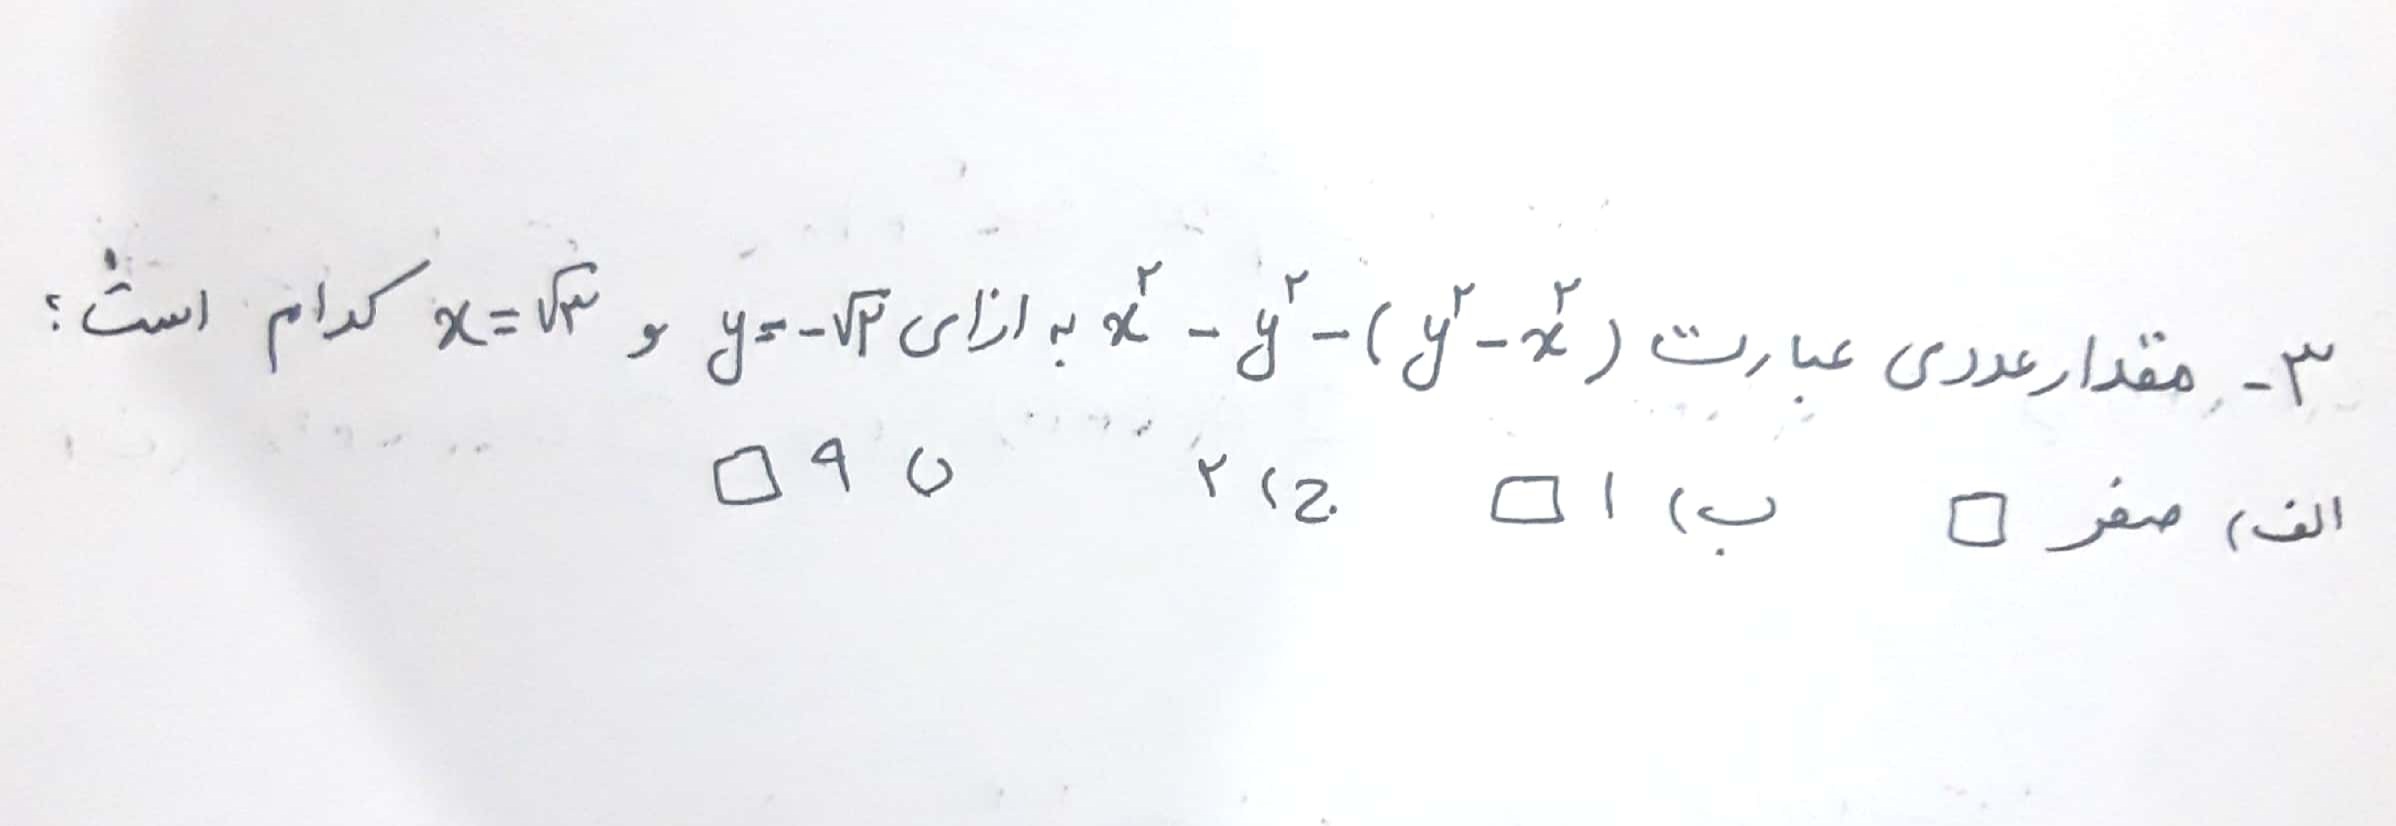 ۳- مقدار عددی عبارت x² - y² - (y² - x²) به ازای y = -√۲ و x = √۳ کدام است؟
الف) صفر □ ب) ۱ □ ج) ۲ د) ۹ □